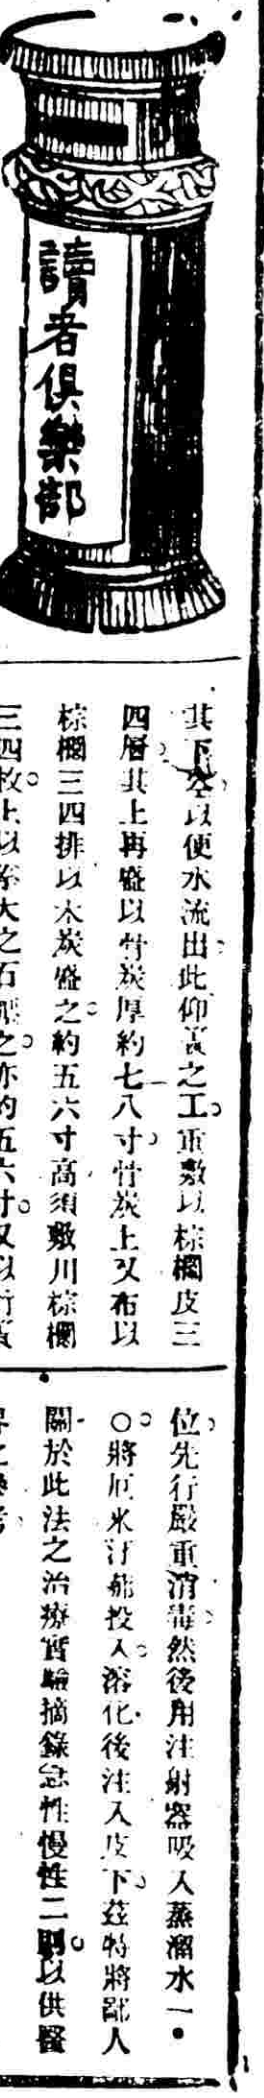 讀者俱樂部
其下空以便水流出此仰之工重敷以棕櫚皮三
四層其上再盛以骨炭厚約七八寸骨炭上又布以
棕櫚三四排以木炭盛之約五六寸高須敷川棕櫚
三四枚上以大之石之亦約五六寸又以
位先行嚴重消毒然後用注射器吸入蒸溜水一•
○將厄米汀茹投入溶化後注入皮下茲特將鄙人
關於此法之治療實驗摘錄急性慢性二則以供醫
界之參考